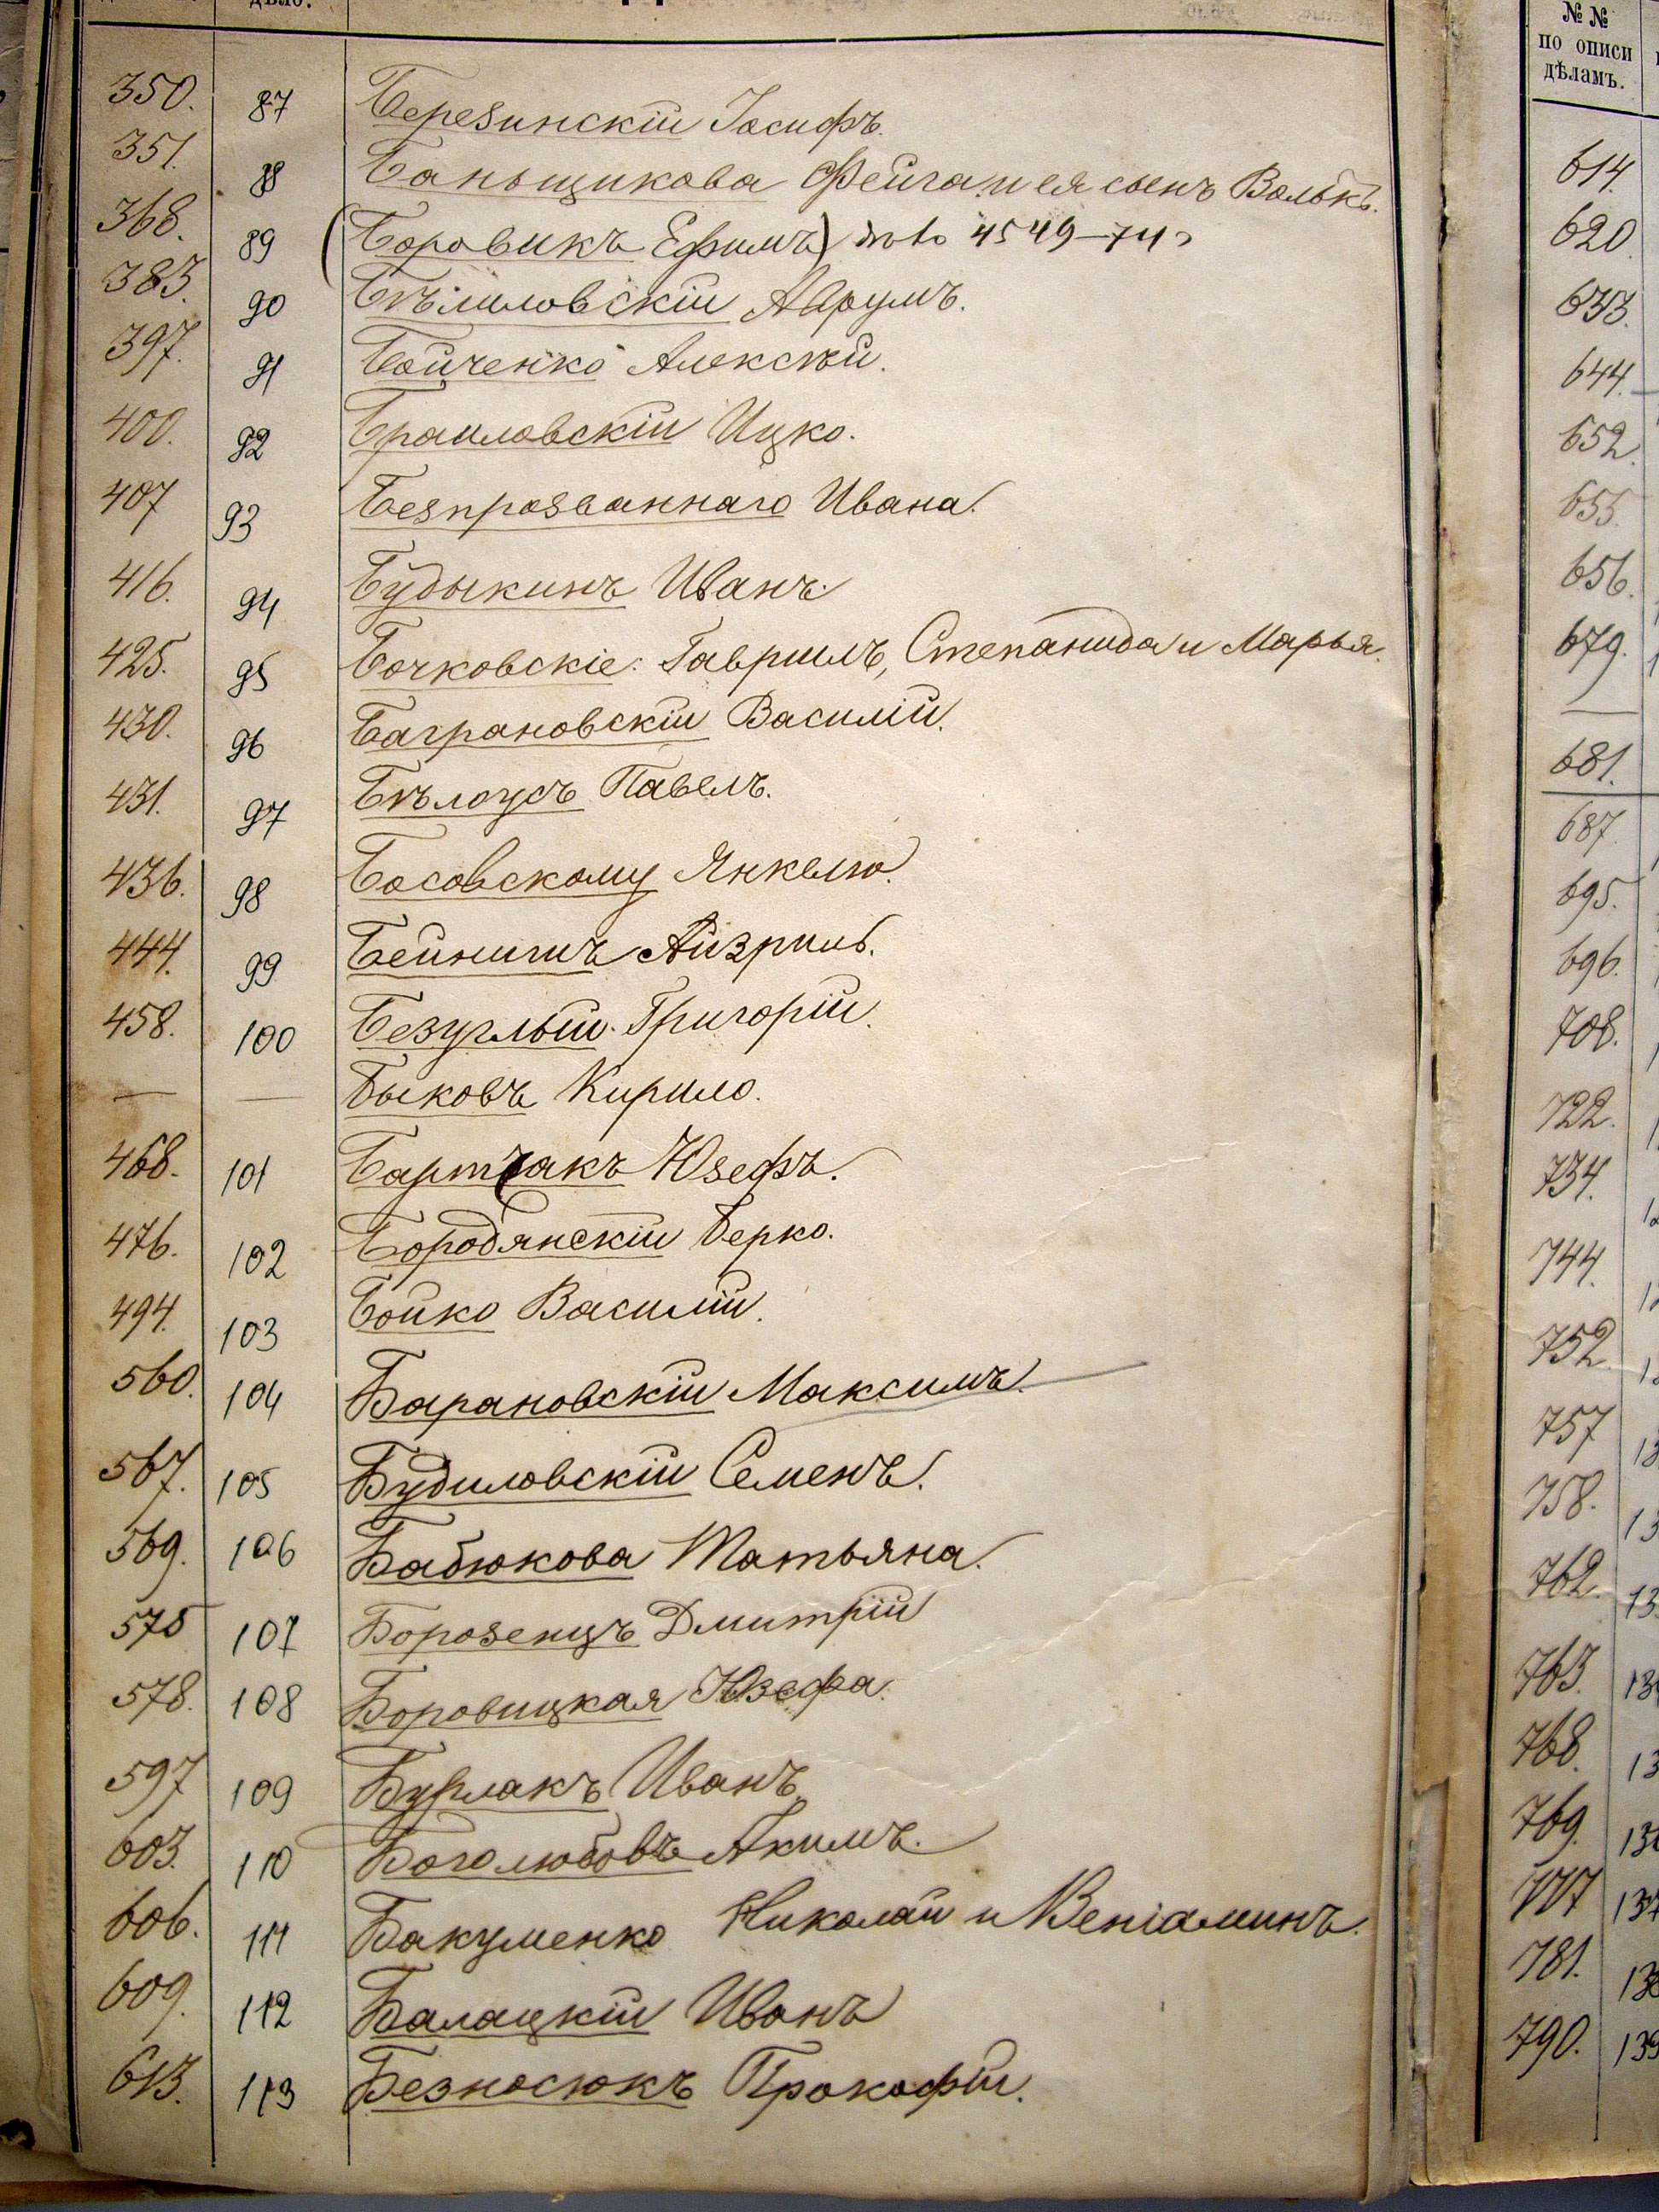 350. 87 Березинскій Іосифъ.
351. 88 Баньщикова Фейга и ея сынъ Волькъ.
368. 89 (Боровикъ Ефимъ) 4549—74
383. 90 Бѣлиловскій Аврумъ.
397. 91 Бойченко Алексѣй.
400. 92 Браиловскій Ицко.
407 93 Безпрозваннаго Ивана.
416. 94 Будыкинъ Иванъ.
425. 95 Бочковскіе: Гавриилъ, Степанида и Марья.
430. 96 Баграновскій Василій.
431. 97 Бѣлоусъ Павелъ.
436. 98 Босовскому Янкелю.
444. 99 Бейнишъ Айзриль.
458. 100 Безуглый Григорій.
— — Быковъ Кирило.
468. 101 Бартчакъ Юзефъ.
476. 102 Бородянскій Берко.
494. 103 Бойко Василій.
560. 104 Барановскій Максимъ.
567. 105 Будиловскій Семенъ.
569. 106 Бабюкова Татьяна.
575 107 Борозенцъ Дмитрій
578. 108 Боровицкая Юзефа.
597 109 Бурлакъ Иванъ.
603. 110 Боголюбовъ Акимъ.
606. 111 Бакуменко Николай и Веніаминъ.
609. 112 Балацкій Иванъ
613. 113 Безносюкъ Прокофій.
№ №
по описи
дѣламъ.
614.
620.
633.
644.
652.
655.
656.
679.
681.
687.
695.
696.
708.
722.
734.
744.
752.
757
758.
762.
763.
768.
769.
777
781.
790.